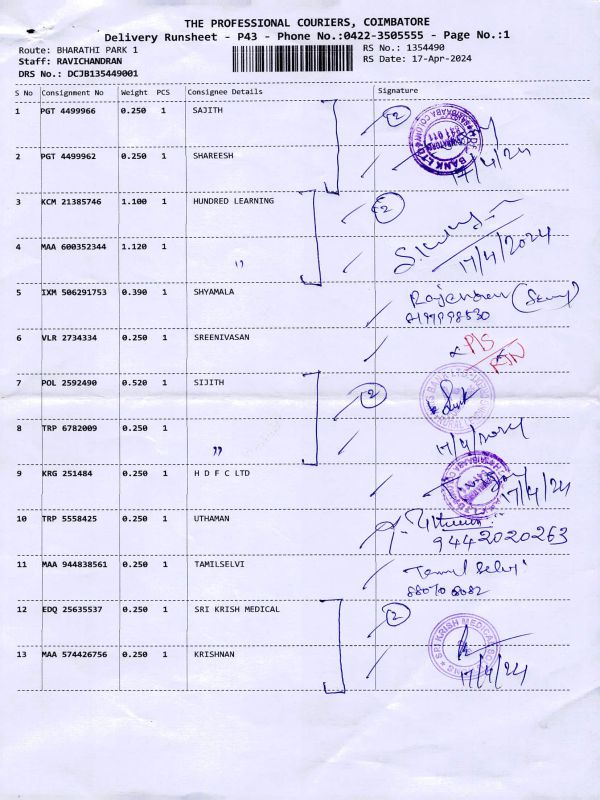 THE PROFESSIONAL COURIERS, COIMBATORE
Delivery Runsheet - P43 - Phone No.:0422-3505555 - Page No.:1
Route: BHARATHI PARK 1 RS No.: 1354490
Staff: RAVICHANDRAN RS Date: 17-Apr-2024
DRS No.: DCJB135449001
S No Consignment No Weight PCS Consignee Details Signature
1 PGT 4499966 0.250 1 SAJITH 2
2 PGT 4499962 0.250 1 SHAREESH 17/4/24
3 KCM 21385746 1.100 1 HUNDRED LEARNING 2
4 MAA 600352344 1.120 1 " 17/4/2024
5 IXM 506291753 0.390 1 SHYAMALA Rajendran
6 VLR 2734334 0.250 1 SREENIVASAN P/S
7 POL 2592490 0.520 1 SIJITH 2
8 TRP 6782009 0.250 1 " 17/4/2024
9 KRG 251484 0.250 1 H D F C LTD 17/4/24
10 TRP 5558425 0.250 1 UTHAMAN
9442020263
11 MAA 944838561 0.250 1 TAMILSELVI Tamil Selvi
12 EDQ 25635537 0.250 1 SRI KRISH MEDICAL 2
SRI KRISH MEDICAL
13 MAA 574426756 0.250 1 KRISHNAN 17/4/24